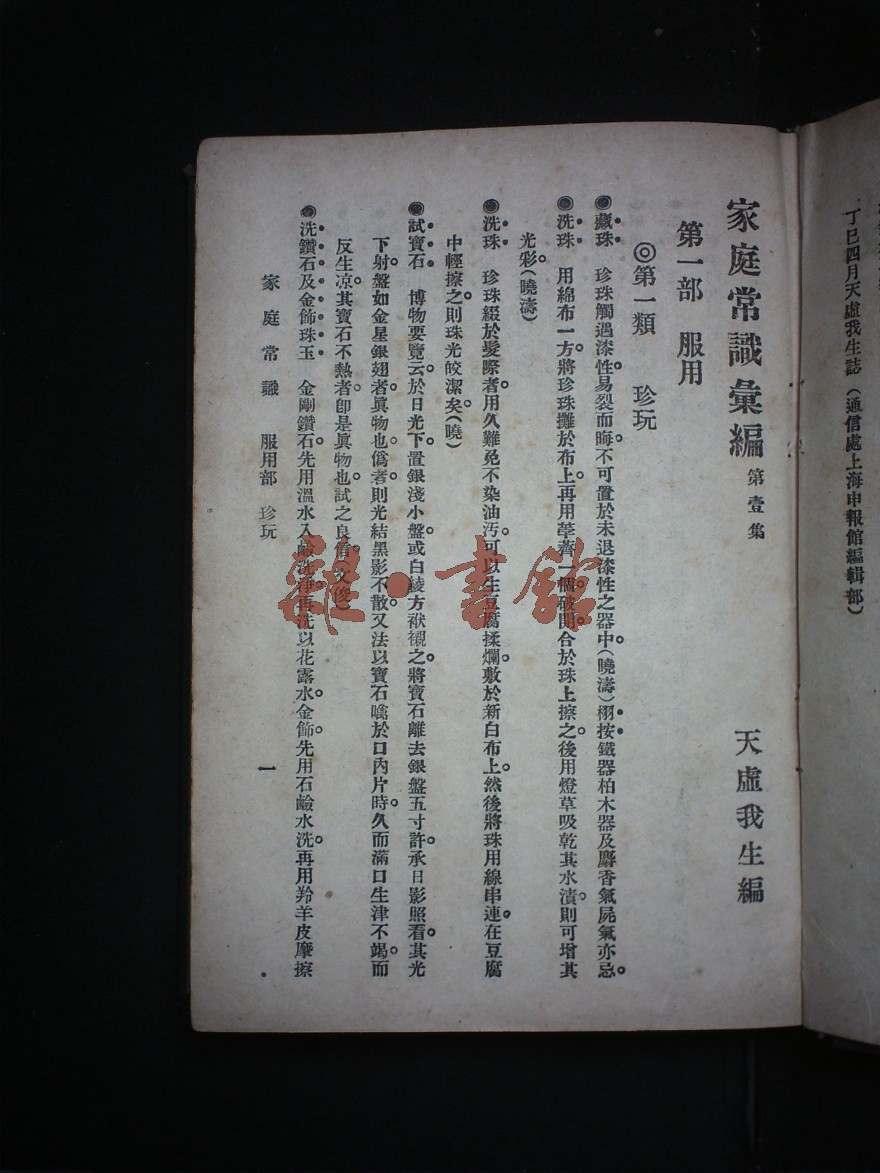 丁巳四月天虛我生誌（通信處上海申報館編輯部）
家庭常識彙編 第壹集 天虛我生編
第一部 服用
◎第一類 珍玩
●藏珠 珍珠觸遇漆性。易裂而晦。不可置於未退漆性之器中。（曉濤）栩按鐵器柏木器及麝香氣屍氣亦忌。
●洗珠 用綿布一方。將珍珠攤於布上。再用荸薺一個。破開合於珠上擦之。後用燈草吸乾其水漬。則可增其
光彩。（曉濤）
●洗珠 珍珠綴於髮際者。用久難免不染油汚。可以生豆腐揉爛。敷於新白布上。然後將珠用線串連。在豆腐
中輕擦之。則珠光皎潔矣。（曉）
●試寶石 博物要覽云。於日光下。置銀淺小盤。或白綾方袱襯之。將寶石離去銀盤五寸許。承日影照看。其光
下射。盤如金星銀翅者。眞物也。僞者。則光結黑影不散。又法以寶石噙於口內。片時久而滿口生津不竭。而
反生凉。其寶石不熱者。卽是眞物也。試之良信。（文俊）
●洗鑽石及金飾珠玉 金剛鑽石。先用溫水入鹼洗淨。再洗以花露水。金飾。先用石鹼水洗。再用羚羊皮摩擦
家庭常識 服用部 珍玩 一
雜·書館